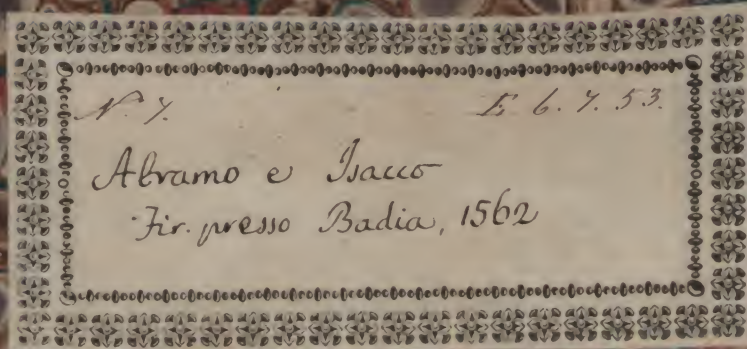 N. 7. E. 6. 7. 53.
Abramo e Isacco
Fir. presso Badia, 1562